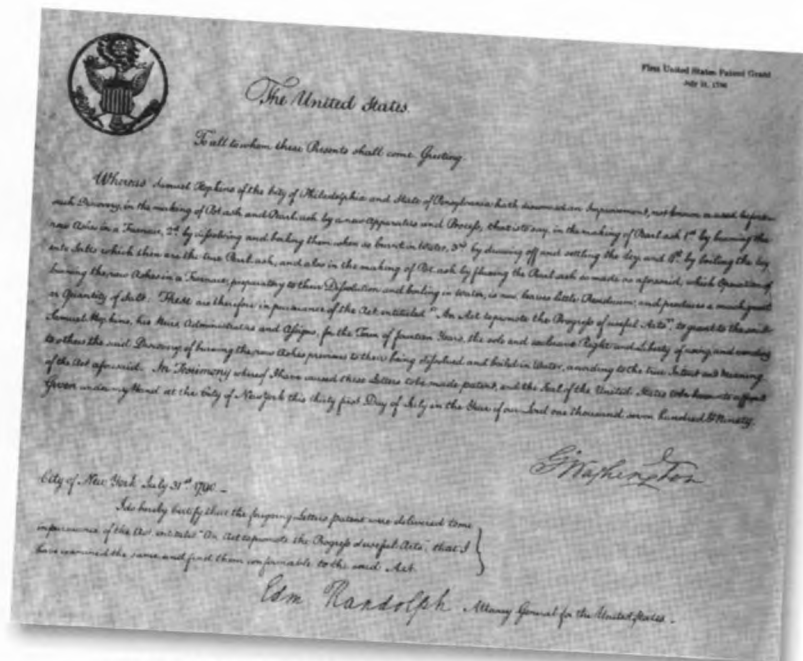 First United States Patent Grant
July 31, 1790
The United States.
To all to whom these Presents shall come. Greeting.
Whereas Samuel Hopkins of the City of Philadelphia and State of Pensylvania hath discovered an Improvement, not known or used before
such Discovery, in the making of Pot ash and Pearl ash by a new Apparatus and Process, that is to say, in the making of Pearl ash 1st. by burning the
raw Ashes in a Furnace, 2d. by dissolving and boiling them when so burnt in Water, 3rd. by drawing off and settling the Ley, and 4th. by boiling the Ley
into Salts which then are the true Pearl ash; and also in the making of Pot ash by fluxing the Pearl ash so made as aforesaid; which Operation of
burning the raw Ashes in a Furnace, preparatory to their Dissolution and boiling in Water, is new, leaves little Residuum; and produces a much greater
Quantity of Salt: These are therefore in pursuance of the Act, entituled "An Act to promote the Progress of useful Arts", to grant to the said
Samuel Hopkins, his Heirs, Administrators and Assigns, for the Term of fourteen Years, the sole and exclusive Right and Liberty of using, and vending
to others the said Discovery of burning the raw Ashes previous to their being dissolved and boiled in Water, according to the true Intent and Meaning
of the Act aforesaid. In Testimony whereof I have caused these Letters to be made patent, and the Seal of the United States to be hereunto affixed
Given under my Hand at the City of New York this thirty first Day of July in the Year of our Lord one thousand seven hundred & Ninety.
G Washington
City of New York July 31st. 1790. -
I do hereby certify that the foregoing Letters patent were delivered to me
in pursuance of the Act, entituled "An Act to promote the Progress of useful Arts"; that I
have examined the same, and find them conformable to the said Act.
Edm Randolph Attorney General for the United States. -